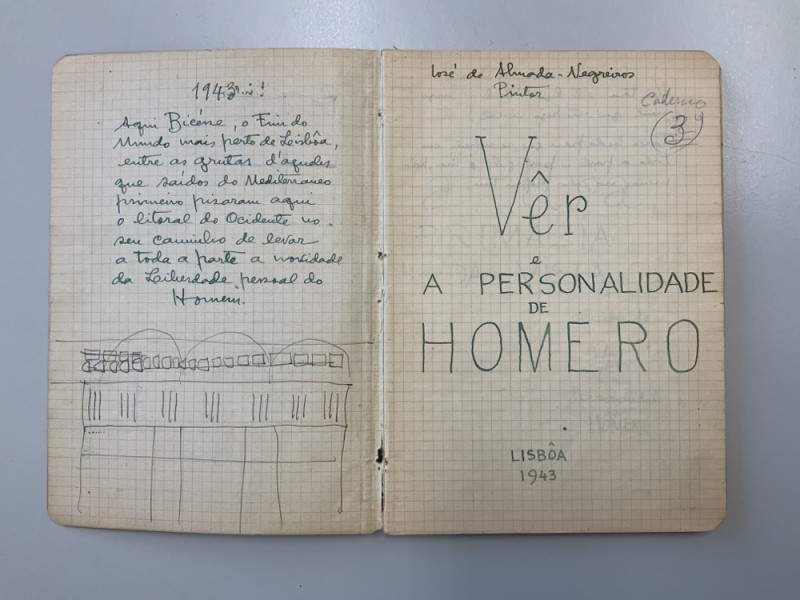 1943
Aqui Bicéne, o Fim do
Mundo mais perto de Leisbôa,
entre as grutas d'aqueles
que saídos do Mediterraneo
primeiro pisaram aqui
o litoral do Ocidente no
seu caminho de levar
a toda a parte a novidade
da Leiberdade pessoal do
Homem.
José de Almada-Negreiros
Pintor
Caderno
3
Vêr
e
A PERSONALIDADE
DE
HOMERO
LISBÔA
1943